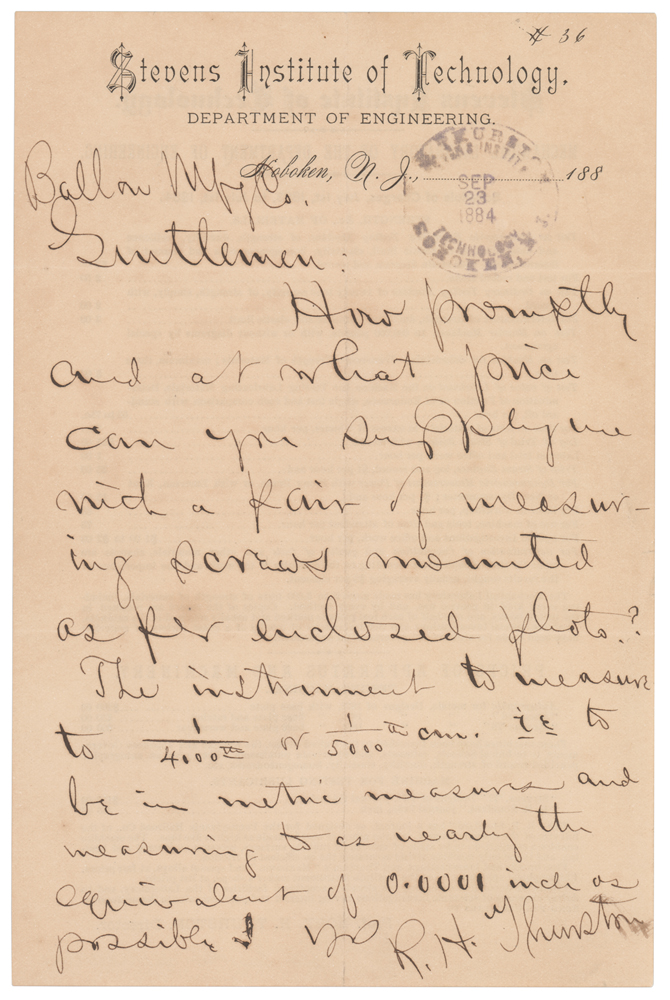 # 36
Stevens Institute of Technology.
DEPARTMENT OF ENGINEERING.
Hoboken, N. J., 188
R. H. THURSTON
SEP
23
1884
TECHNOLOGY
HOBOKEN, N. J.
Ballou Mfg Co.
Gentlemen:
How promptly
and at what price
can you supply me
with a pair of measur-
ing screws mounted
as per enclosed photo.?
The instrument to measure
to 1/4000th or 1/5000th cm. i e to
be in metric measures and
measuring to as nearly the
equivalent of 0.0001 inch as
possible
R. H. Thurston